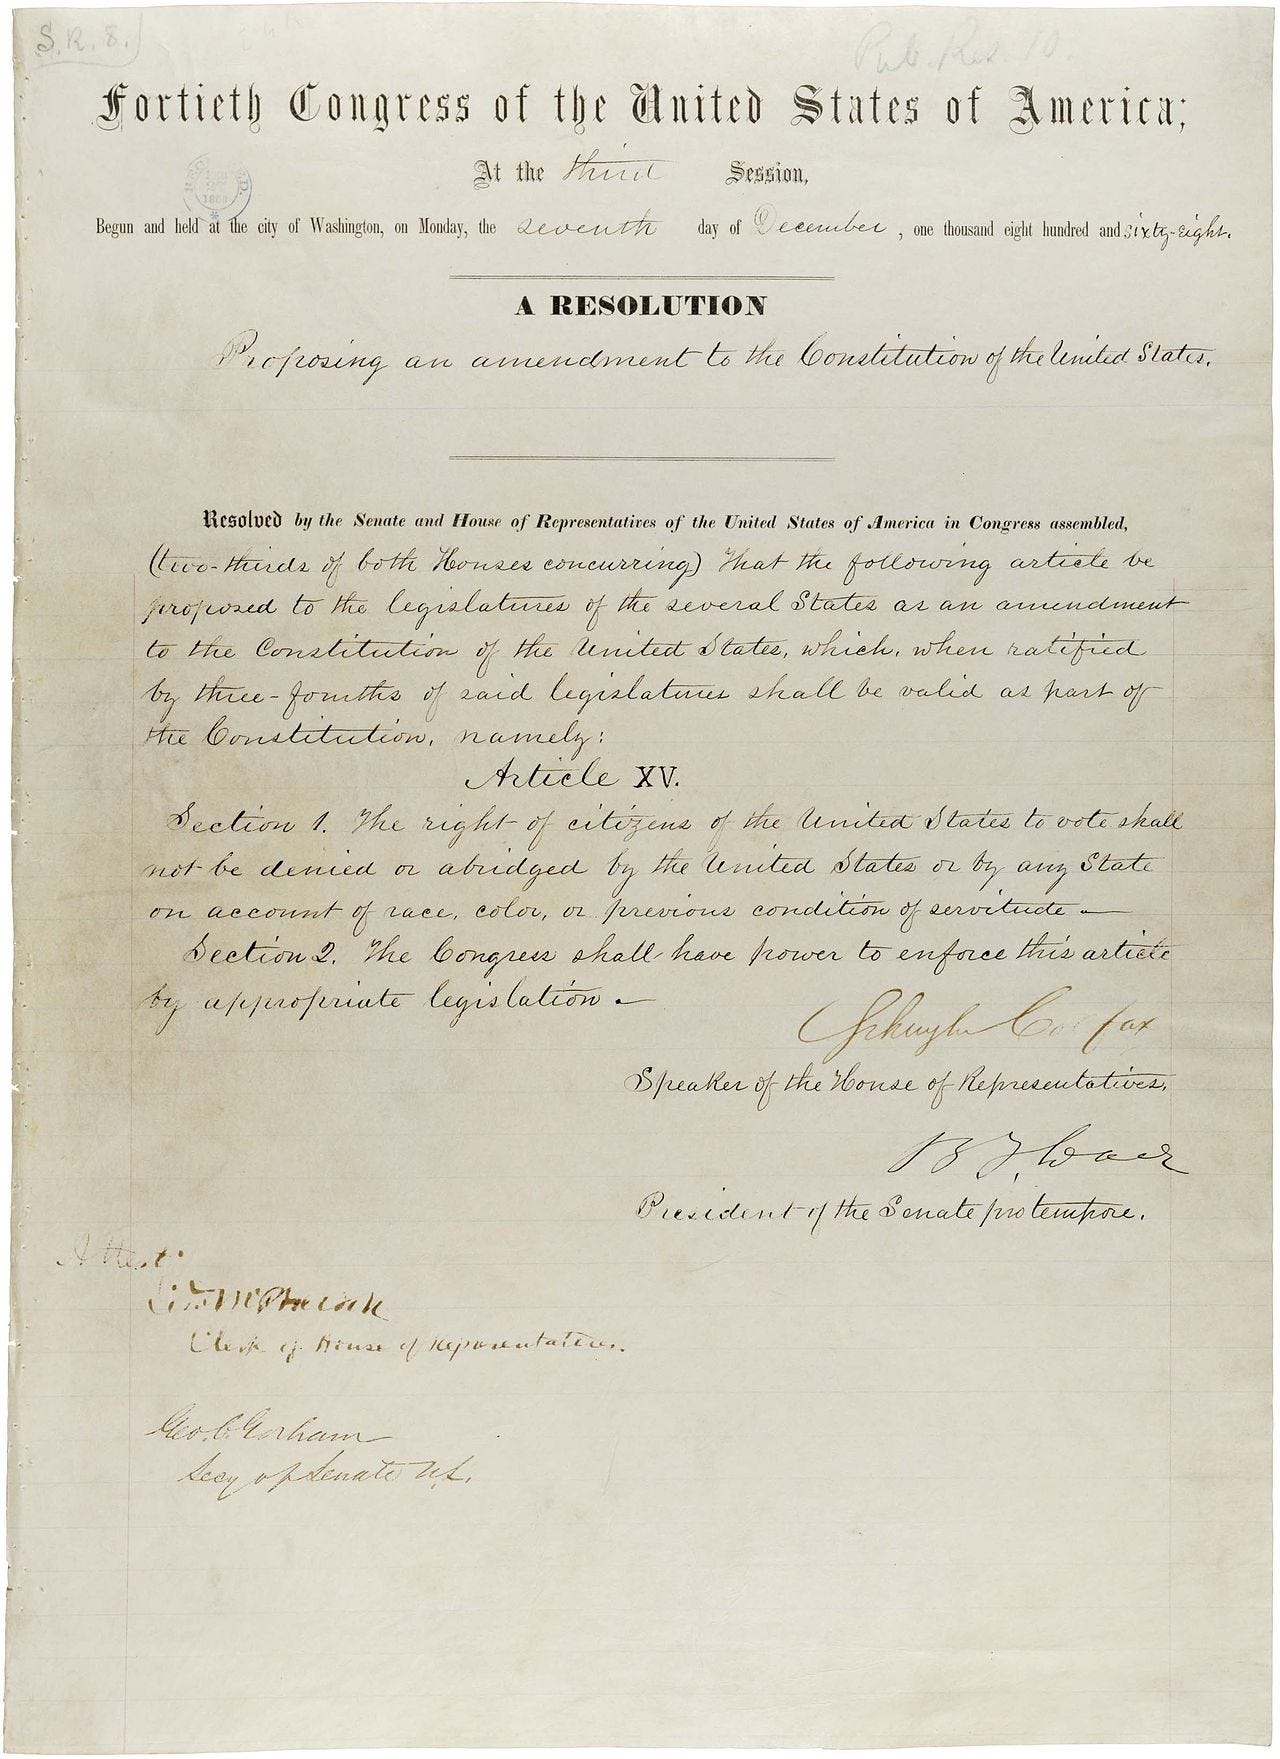 S.R. 8.
Pub. Res. 10.
Fortieth Congress of the United States of America;
At the third Session,
Begun and held at the city of Washington, on Monday, the seventh day of December, one thousand eight hundred and sixty-eight.
A RESOLUTION
Proposing an amendment to the Constitution of the United States.
Resolved by the Senate and House of Representatives of the United States of America in Congress assembled,
(two-thirds of both Houses concurring) That the following article be
proposed to the legislatures of the several States as an amendment
to the Constitution of the United States, which, when ratified
by three-fourths of said legislatures shall be valid as part of
the Constitution, namely:
Article XV.
Section 1. The right of citizens of the United States to vote shall
not be denied or abridged by the United States or by any State
on account of race, color, or previous condition of servitude —
Section 2. The Congress shall have power to enforce this article
by appropriate legislation —
Schuyler Colfax
Speaker of the House of Representatives.
B F Wade
President of the Senate pro tempore.
Attest:
McPherson
Clerk of House of Representatives.
Geo. C. Gorham
Secy of Senate U.S.